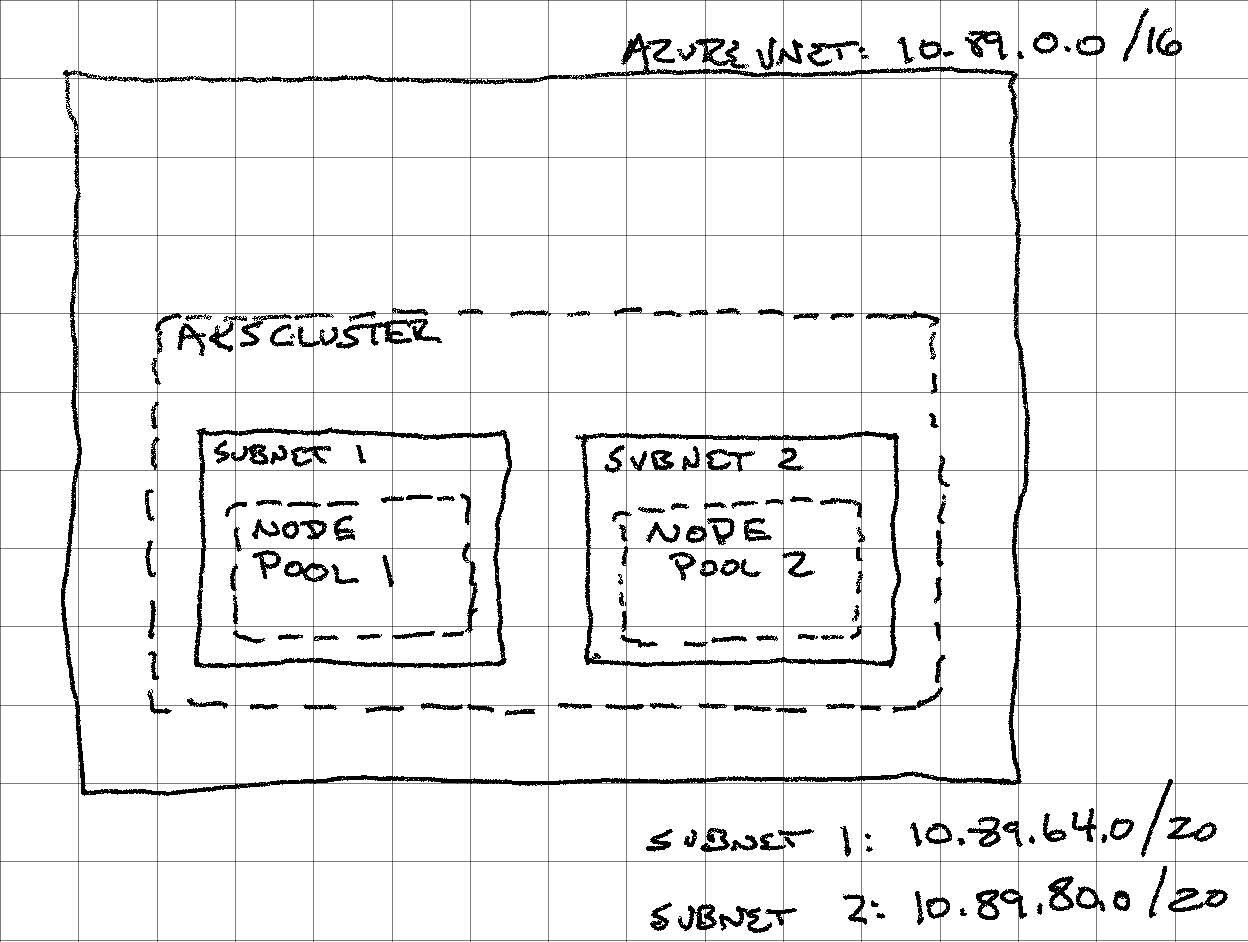 AZURE VNET: 10.89.0.0/16
AKS CLUSTER
SUBNET 1
NODE
POOL 1
SUBNET 2
NODE
POOL 2
SUBNET 1: 10.89.64.0/20
SUBNET 2: 10.89.80.0/20